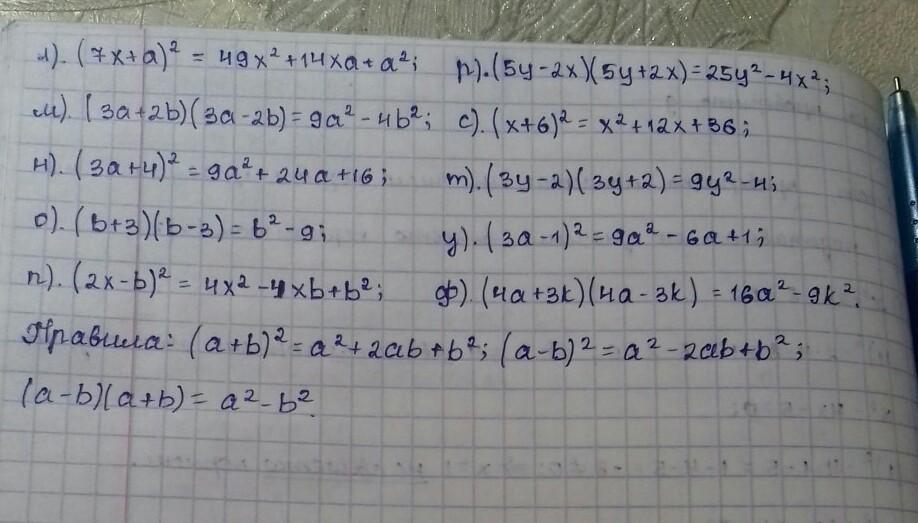 л). (7x+a)² = 49x²+14xa+a²; р). (5y-2x)(5y+2x)=25y²-4x²;
м). (3a+2b)(3a-2b)=9a²-4b²; с). (x+6)² = x²+12x+36;
н). (3a+4)² = 9a²+24a+16; т). (3y-2)(3y+2)=9y²-4;
о). (b+3)(b-3)=b²-9; у). (3a-1)²=9a²-6a+1;
п). (2x-b)² = 4x²-4xb+b²; ф). (4a+3k)(4a-3k)=16a²-9k².
Правила: (a+b)²=a²+2ab+b²; (a-b)²=a²-2ab+b²;
(a-b)(a+b)= a²-b².